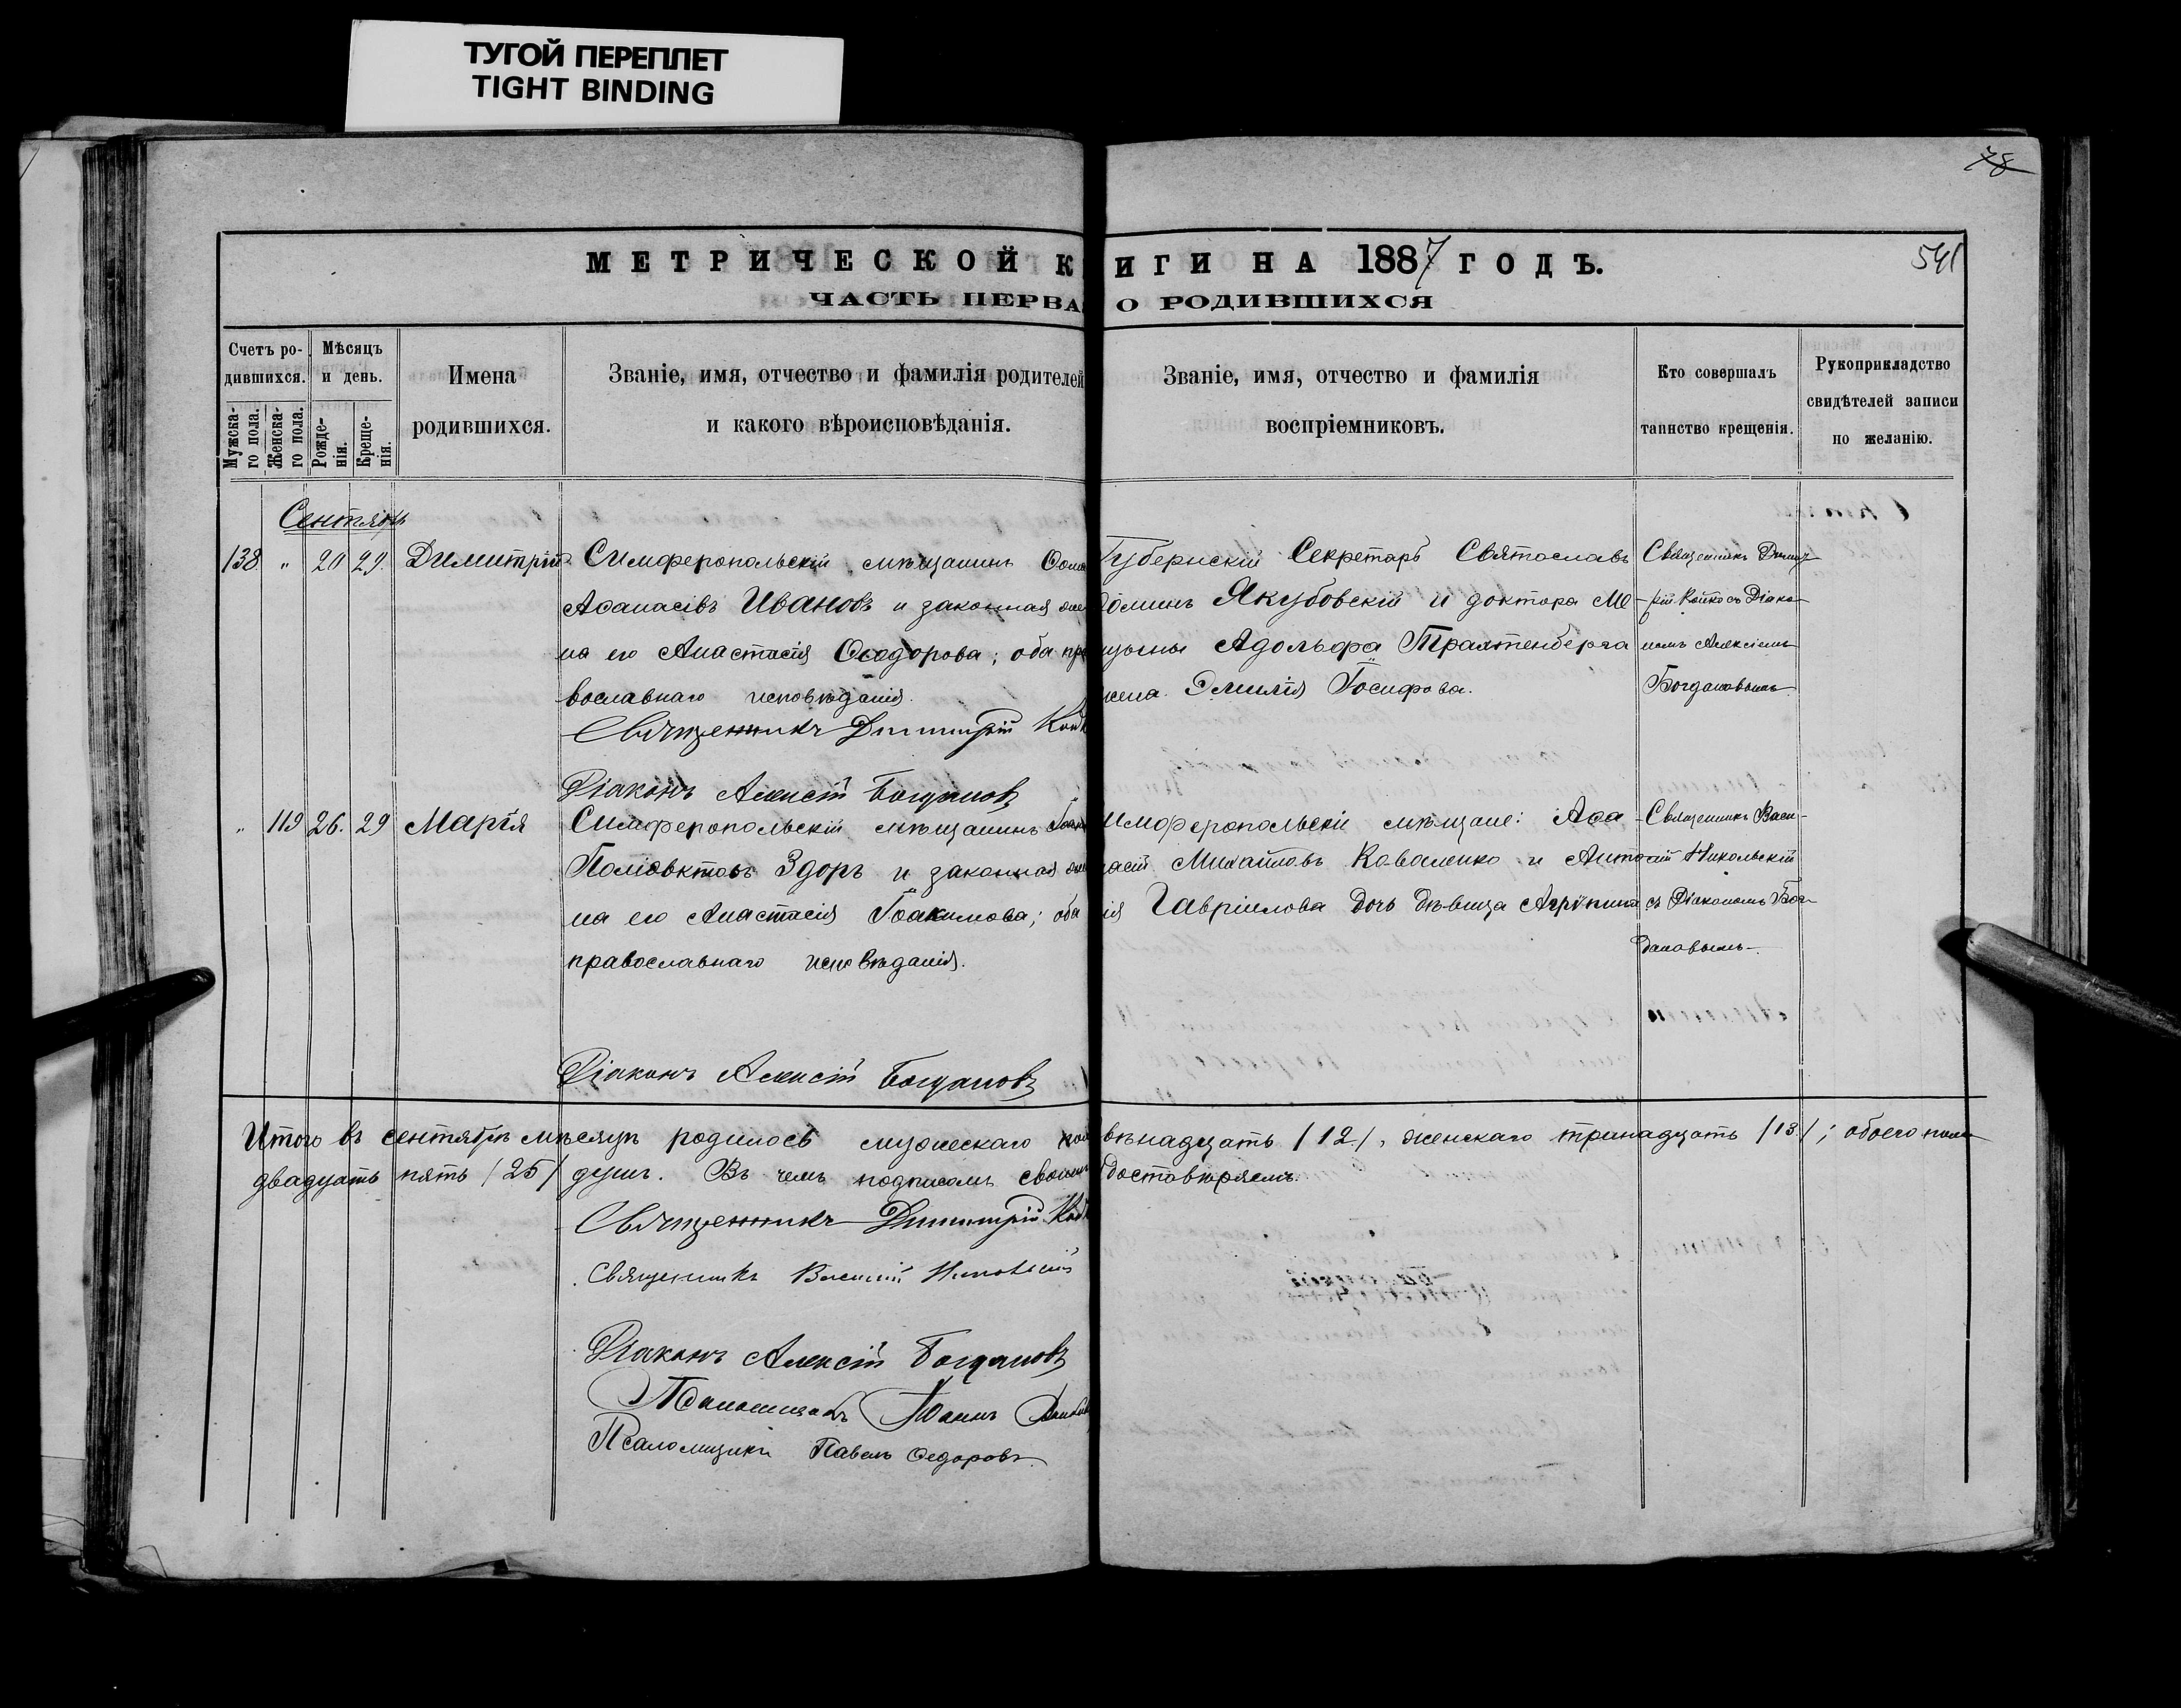 ТУГОЙ ПЕРЕПЛЕТ
TIGHT BINDING
78
МЕТРИЧЕСКОЙ К ИГИ НА 1887 ГОДЪ.
541
ЧАСТЬ ПЕРВА О РОДИВШИХСЯ
Счетъ ро-
дившихся.
Мужска-
го пола.
Женска-
го пола.
Мѣсяцъ
и день.
Рожде-
нія.
Креще-
нія.
Имена
родившихся.
Званіе, имя, отчество и фамилія родителей
и какого вѣроисповѣданія.
Званіе, имя, отчество и фамилія
воспріемниковъ.
Кто совершалъ
таинство крещенія.
Рукоприкладство
свидѣтелей записи
по желанію.
Сентябрь
138 " 20 29 Димитрій
Симферопольскій мѣщанинъ
Аѳанасіевъ Ивановъ и законная же
на его Анастасія Ѳеодорова; оба пра
вославнаго исповѣданія.
Священникъ Димитрій Койк
Діаконъ Алексій Богдановъ
Губернскій Секретарь Святославъ
Якубовскій и доктора Ме-
ицины Адольфа Трахтенберга
жена Эмилія Іосифова.
Священникъ Димит
рій Койко съ Діако
номъ Алексіемъ
Богдановымъ
" 119 26. 29 Марія
Симферопольскій мѣщанинъ
Поліевктовъ Здоръ и законная же
на его Анастасія Іоакимова; оба
православнаго исповѣданія.
Діаконъ Алексій Богдановъ
имферопольскіе мѣщане: Аѳа-
насій Михайловъ Коваленко и Анто
нія Гавріилова дочь дѣвица Агрипина
Священникъ Васи-
лій Никольскій
съ Діакономъ Бог-
дановымъ
Итого въ сентябрѣ мѣсяцѣ родилось мужескаго пол
вѣнадцать /12/, женскаго тринадцать /13/; обоего пола
двадцать пять /25/ душъ. Въ чемъ подписомъ своимъ
удостовѣряемъ.
Священникъ Димитрій Койк
Священникъ Василій Никольскій
Діаконъ Алексій Богдановъ
Псаломщикъ Іоаннъ
Псаломщикъ Павелъ Ѳедоровъ